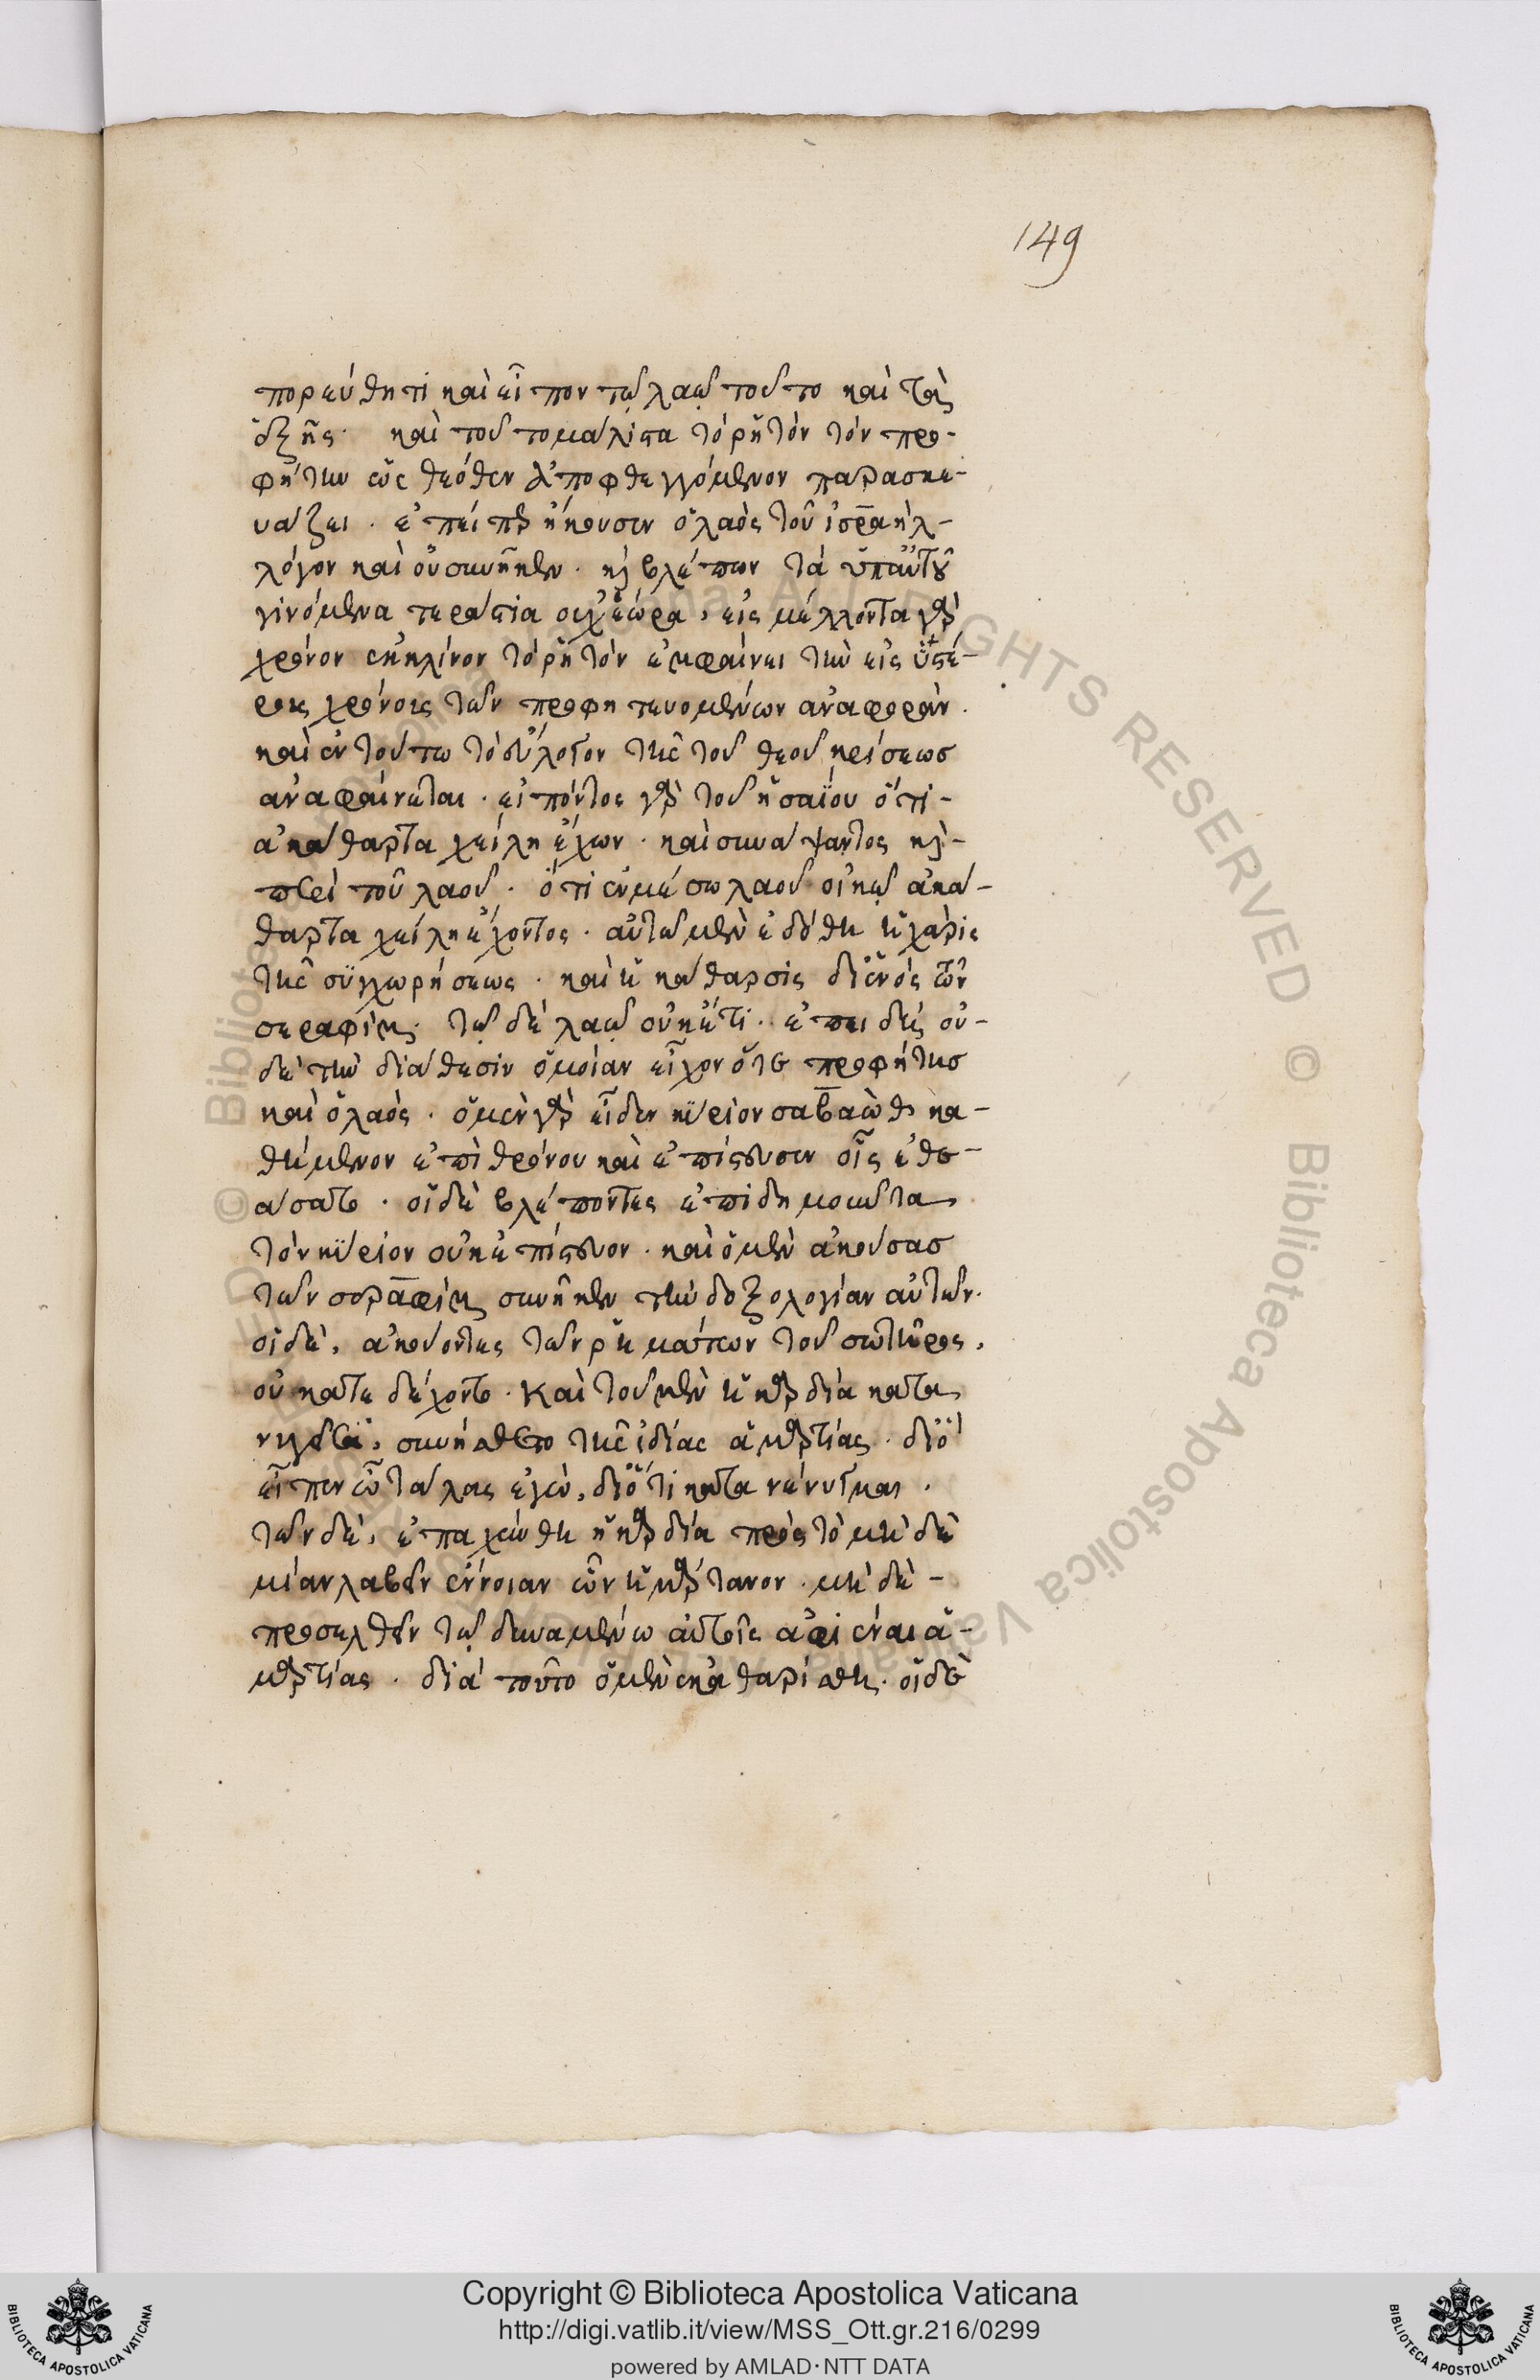 149
πορεύθητι καὶ εἶπον τῷ λαῷ τούτο καὶ τὰ
ἑξῆς· καὶ τοῦτο μάλιστα τὸ ῥητὸν τὸν προ-
φήτην ὡς θεόθεν ἀποφθεγγόμενον παρασκε-
υάζει· ἐπείπερ ἤκουσεν ὁ λαὸς τοῦ ἰσραὴλ-
λόγον καὶ οὐ συνῆκεν· κ βλέπων τὰ ὑπ' αὐτοῦ
γινόμενα τεράστια οὐχ ἑώρα, εἰς μέλλοντα γὰρ
χρόνον ἐκκλίνον τὸ ῥητὸν ἐμφαίνει τὴν εἰς ὑστέ-
ροις χρόνοις τῶν προφητευομένων ἀναφοράν·
καὶ ἐν τούτω τὸ εὔλογον τῆς τοῦ θεοῦ κρίσεως
ἀναφαίνεται· εἰπόντος γὰρ τοῦ ἠσαΐου ὅτι-
ἀκάθαρτα χείλη ἔχων· καὶ συνάψαντος κ-
περὶ τοῦ λαοῦ· ὅτι ἐν μέσω λαοῦ οἰκῶ ἀκά-
θαρτα χείλη ἔχοντος· αὐτῶ μὲν ἐδόθη ἡ χάρις
τῆς συγχωρήσεως· καὶ ἡ κάθαρσις δι' ἑνὸς τῶν
σεραφίμ· τῷ δὲ λαῷ οὐκέτι· ἐπειδὴ οὐ-
δὲ τὴν διάθεσιν ὁμοίαν εἶχον ὅτε προφήτης
καὶ ὁ λαός· ὁ μὲν γὰρ εἶδεν κύριον σαβαὼθ κα-
θήμενον ἐπὶ θρόνου καὶ ἐπίστευσεν οἷς ἐθε-
άσατο· οἱ δὲ βλέποντες ἐπιδημοῦντα
τὸν κύριον οὐκ ἐπίστευον· καὶ ὁ μὲν ἀκούσας
τῶν σεραφὶμ συνῆκεν τὴν δοξολογίαν αὐτῶν·
οἱ δὲ, ἀκούοντες τῶν ῥημάτων τοῦ σωτῆρος,
οὐ κατεδέχοντο· καὶ τοῦ μὲν ἡ καρδία κατα
νυγεῖσα, συνήσθετο τῆς ἰδίας ἁμαρτίας· διὸ
εἶπεν ὦ τάλας ἐγώ, διότι κατανένυγμαι·
τῶν δὲ, ἐπαχύνθη ἡ καρδία πρὸς τὸ μηδὲ
μίαν λαβεῖν ἔννοιαν ὧν ἡμάρτανον· μηδὲ-
προσελθεῖν τῷ δυναμένω αὐτοῖς ἀφιέναι ἁ-
μαρτίας· διὰ τοῦτο ὁ μὲν ἐκαθαρίσθη· οἱ δὲ
Copyright © Biblioteca Apostolica Vaticana
http://digi.vatlib.it/view/MSS_Ott.gr.216/0299
powered by AMLAD·NTT DATA